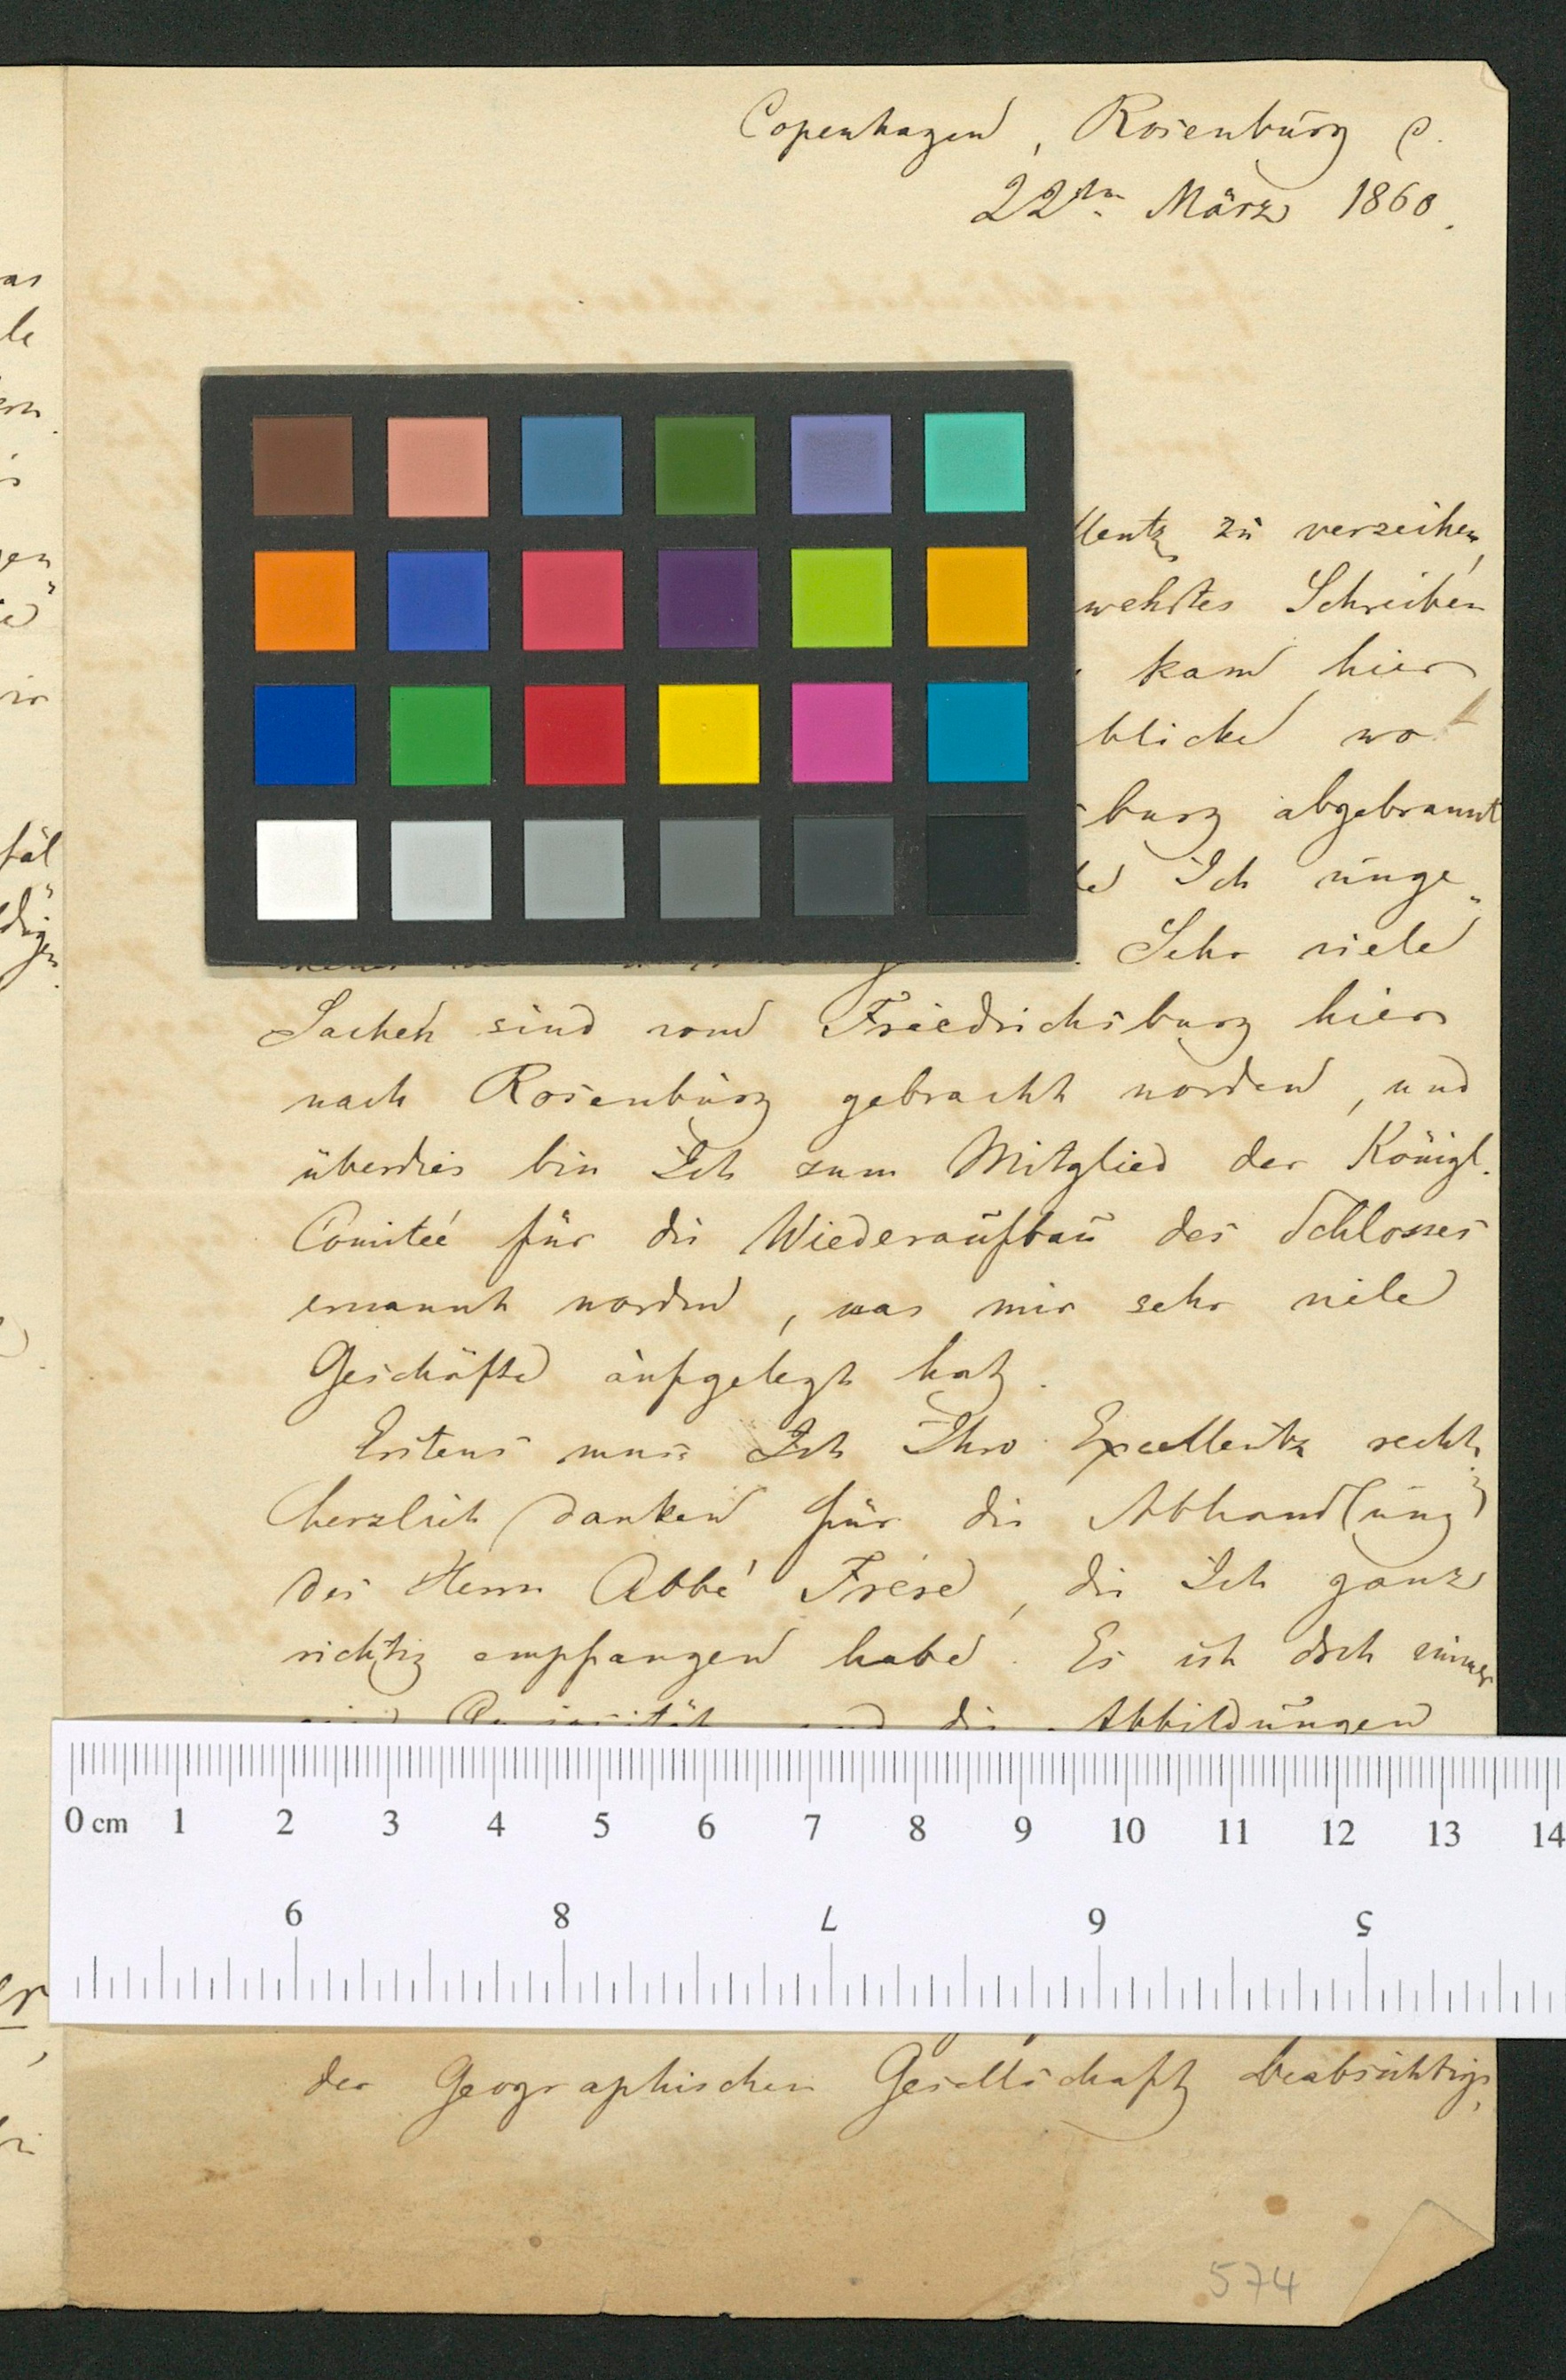 Copenhagen, Rosenburg
22ten März 1860.
zu verzeihen,
Schreiben
kam hier
blicke wo
burg abgebrannt
Ich unge„
Sehr viele
Sachen sind von Friedrichsburg hier
nach Rosenburg gebracht worden, und
überdies bin Ich zum Mitglied der Königl.
Comiteé für die Wiederaufbau des Schlosses
ernannt worden, was mir sehr viele
Geschäfte aufgelegt hat.
Erstens muss Ich Ihro Excellentz recht
herzlich danken für die Abhandlung
des Herrn Abbé Frére, die Ich ganz
richtig empfangen habe. Es ist doch immer
Curiosität und die Abbildungen
0 cm 1 2 3 4 5 6 7 8 9 10 11 12 13 14
9 8 7 6 5
der Geographischen Gesellschaft beabsichtigt,
574